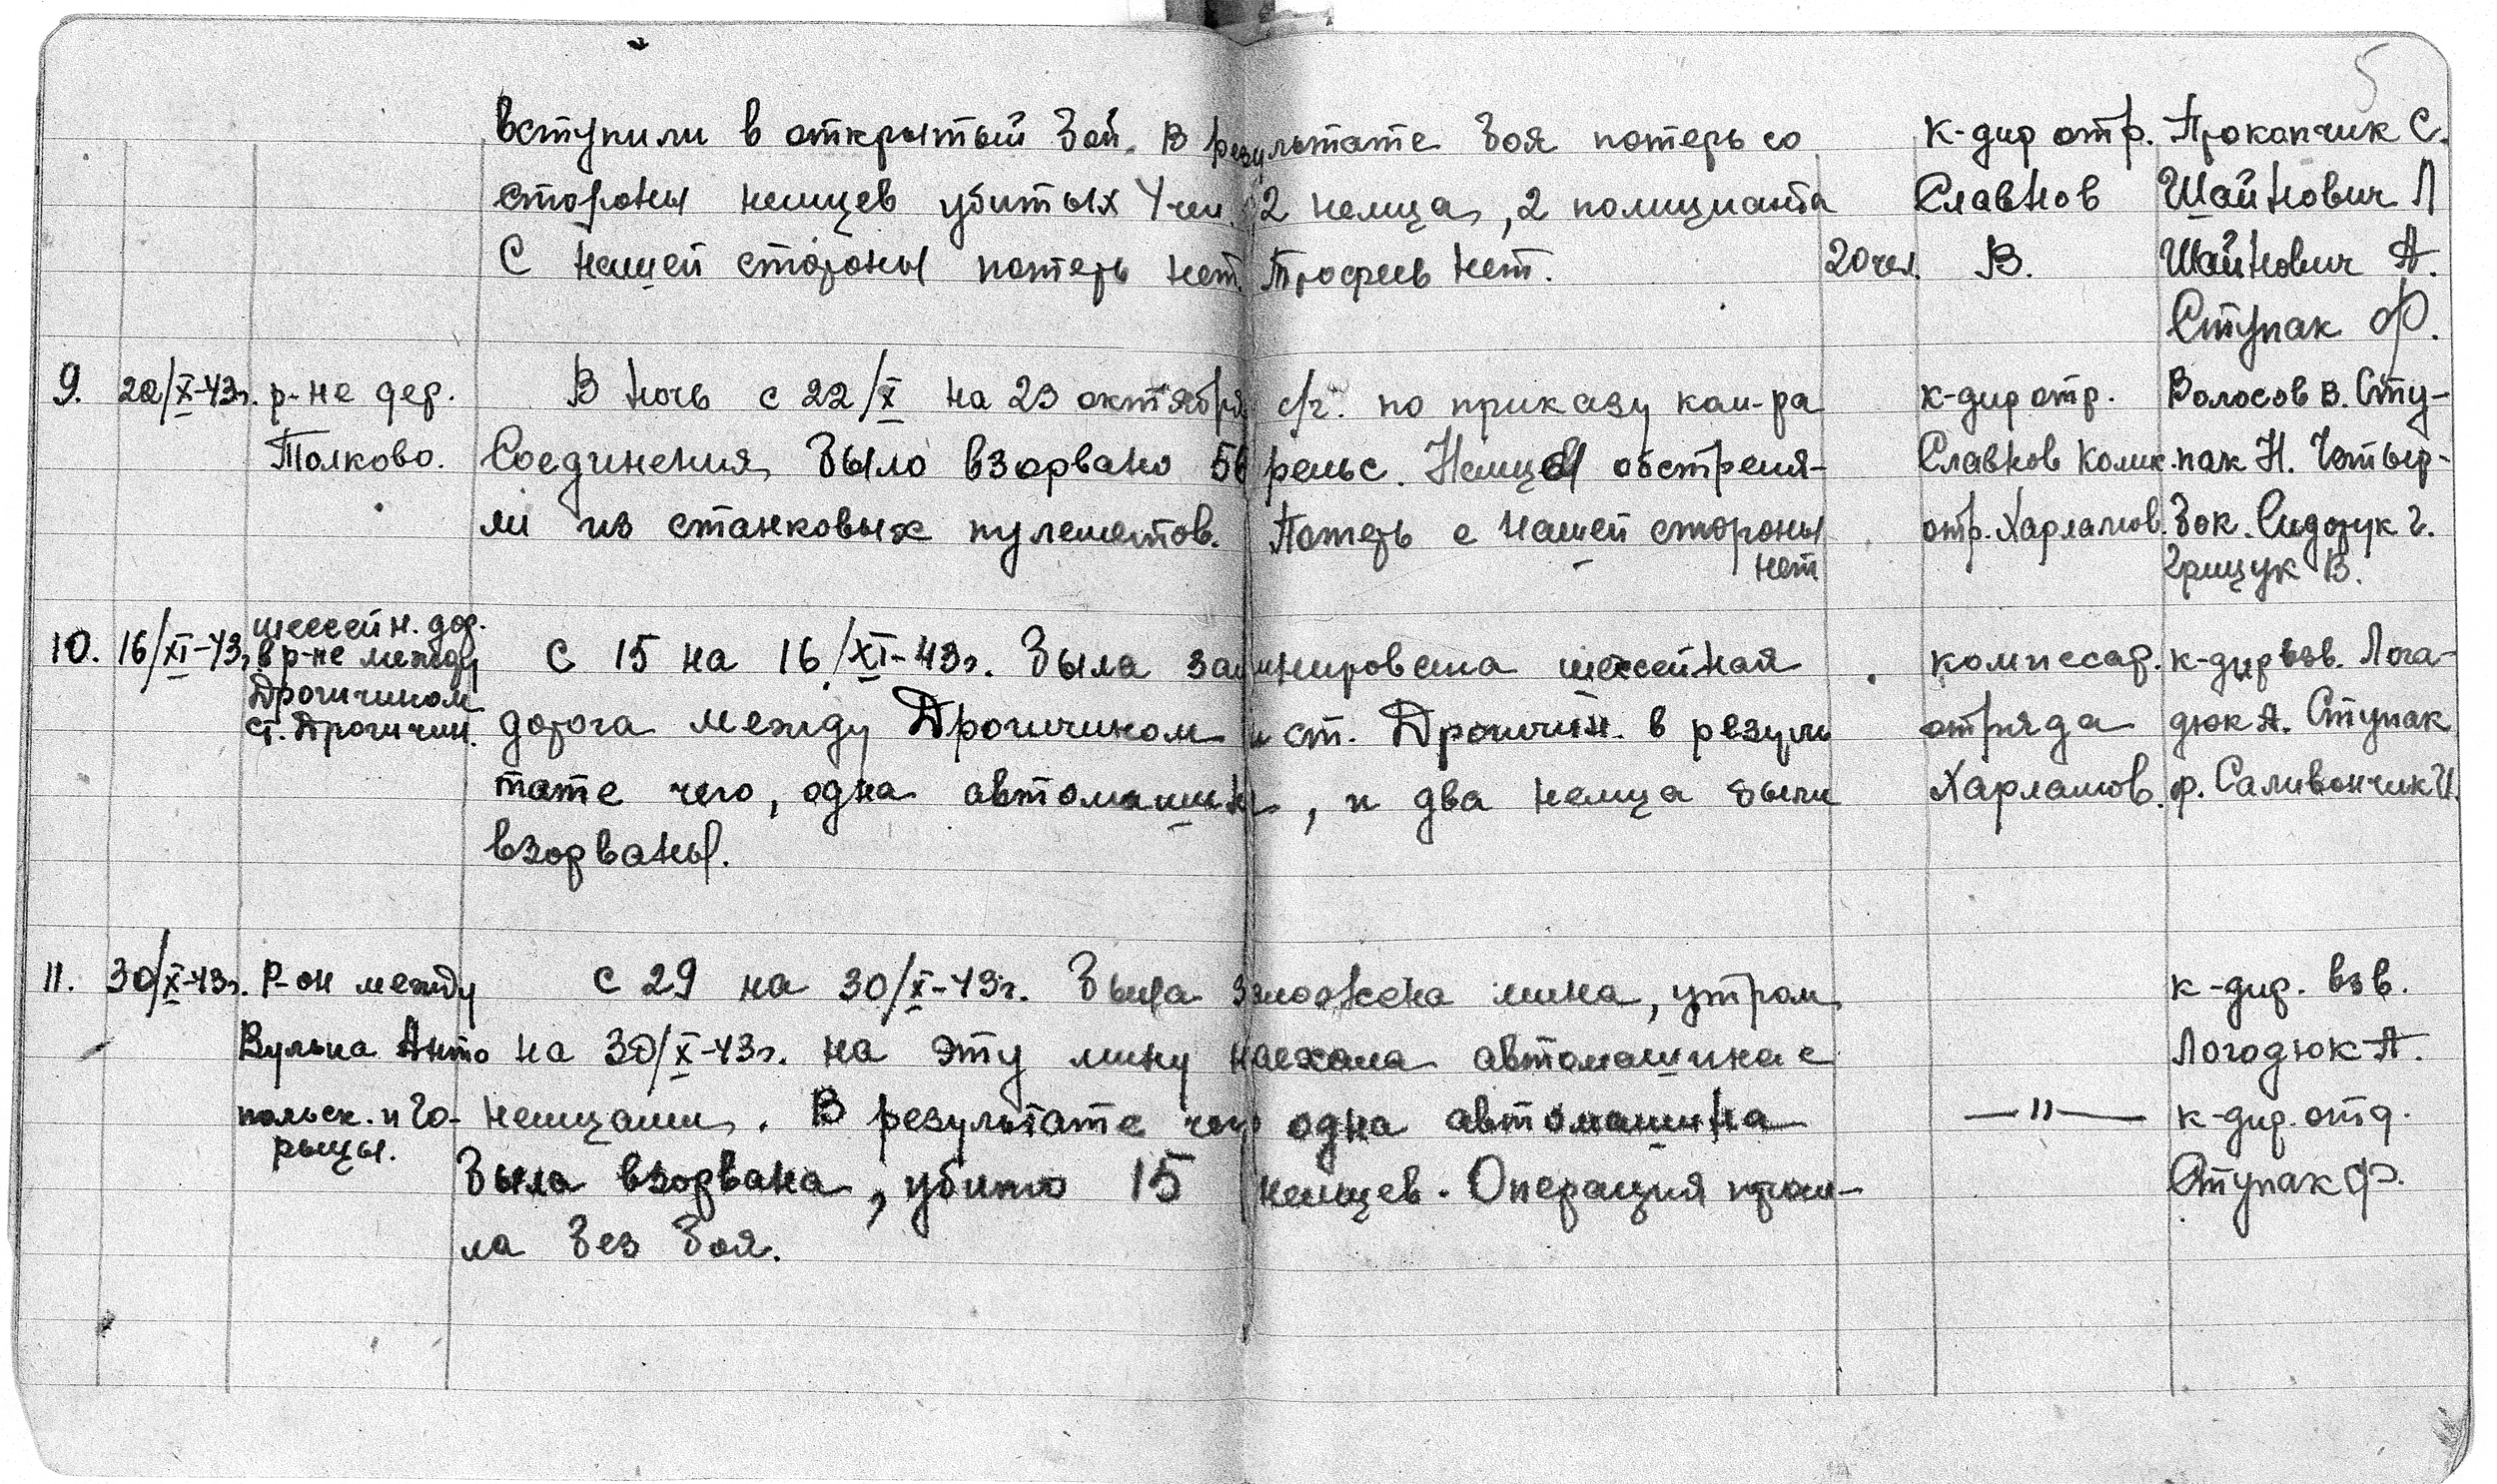 5
вступили в открытый бой. В результате боя потерь со
стороны немцев убитых 4 чел. 2 немца, 2 полицианта
С нашей стороны потерь нет. Трофеев нет. 20 чел.
к-дир отр.
Славнов
В.
Прокапчик С.
Шайнович Л
Шайнович А.
Ступак Ф.
9. 22/X-43г. р-не дер.
Толково.
В ночь с 22/X на 23 октября с/г. по приказу ком-ра
Соединения, было взорвано 56 рельс. Немцы обстреля-
ли из станковых пулеметов. Потерь с нашей стороны
нет
к-дир отр.
Славнов Комис.
отр. Харламов.
Волосов В. Сту-
пак Н. Четыр-
бок. Сидорук Г.
Грищук В.
10. 16/XI-43г. шессейн. дор.
в р-не между
Дрогичином
ст. Дрогичин.
С 15 на 16/XI-43г. была заминирована шессейная
дорога между Дрогичином и ст. Дрогичин. в резуль
тате чего, одна автомашина, и два немца были
взорваны.
комиссар.
отряда
Харламов.
к-дир взв. Лога-
дюк А. Ступак
Ф. Саливончик И.
11. 30/X-43г. Р-он между
Вулька Анто
польск. и Го-
рыцы.
С 29 на 30/X-43г. была заложена мина, утром
на 30/X-43г. на эту мину наехала автомашина с
немцами. В результате чего одна автомашина
была взорвана, убито 15 немцев. Операция прош-
ла без боя.
—"—
к-дир. взв.
Логодюк А.
к-дир. отд.
Ступак Ф.